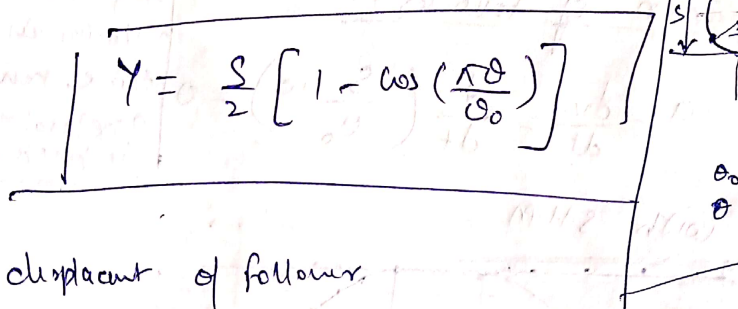 S
Y = S/2 [1 - cos (πθ/θ₀)]
θ₀
θ
displacent of follower.